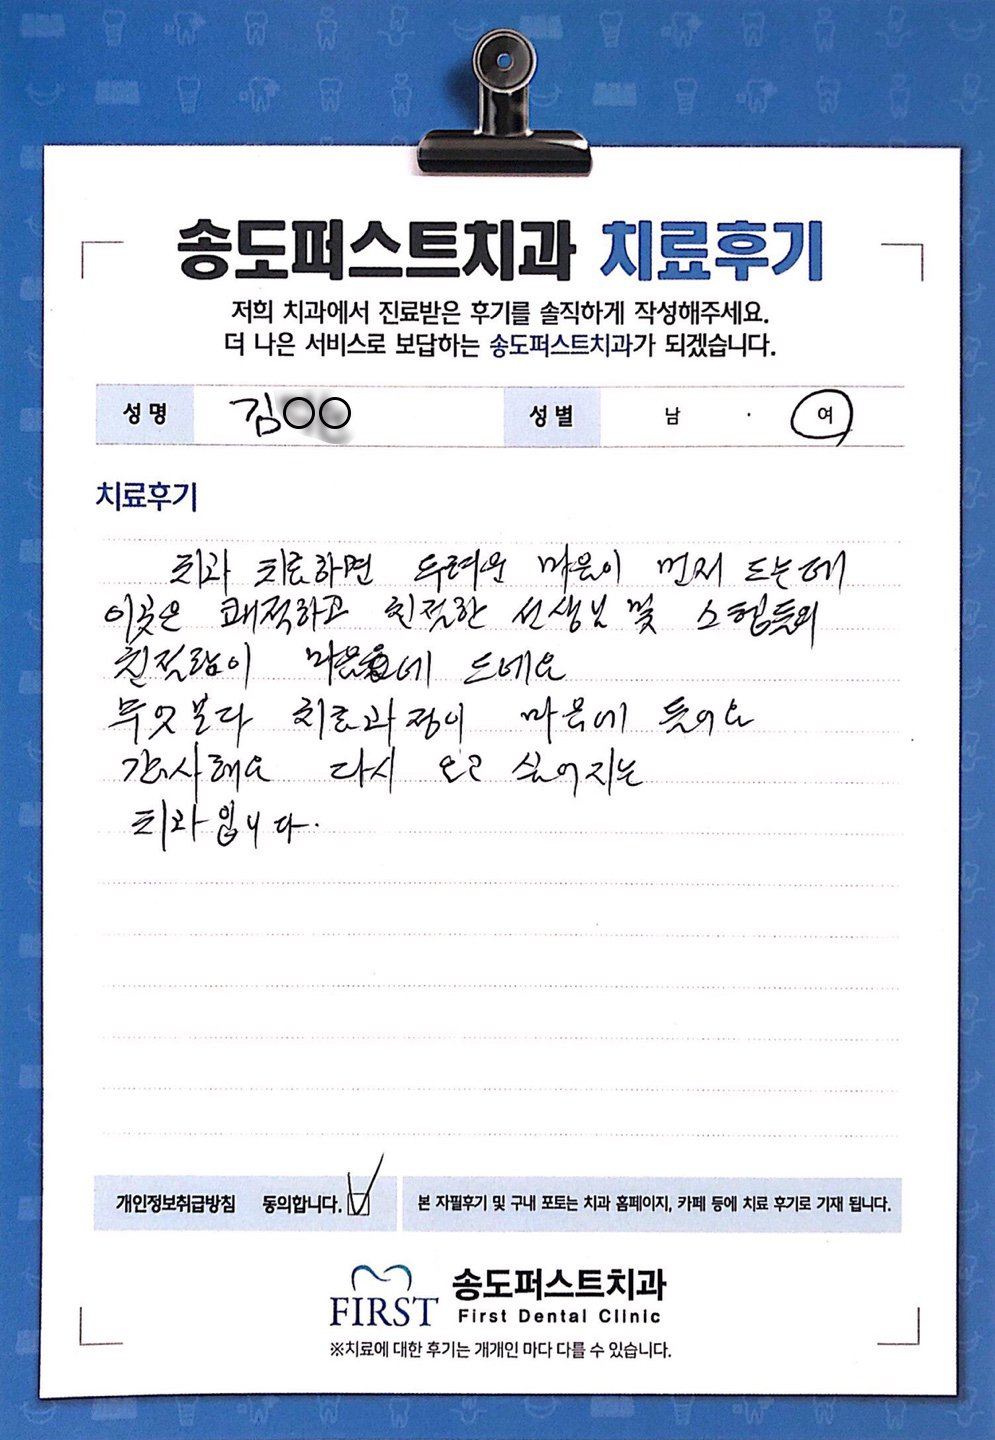 송도퍼스트치과 치료후기
저희 치과에서 진료받은 후기를 솔직하게 작성해주세요.
더 나은 서비스로 보답하는 송도퍼스트치과가 되겠습니다.
성명 김○○ 성별 남 · 여
치료후기
치과 치료하면 두려운 마음이 먼저 드는데
이곳은 쾌적하고 친절한 선생님 및 스텝들의
친절함이 마음에 드네요
무엇보다 치료과정이 마음에 듯어요
감사해요 다시 오고 싶어지는
치과입니다.
개인정보취급방침 동의합니다.
본 자필후기 및 구내 포토는 치과 홈페이지, 카페 등에 치료 후기로 기재 됩니다.
FIRST 송도퍼스트치과
First Dental Clinic
※치료에 대한 후기는 개개인 마다 다를 수 있습니다.